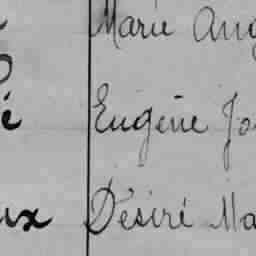 Marie Ang
é Eugène Jo
ux Désiré Ma